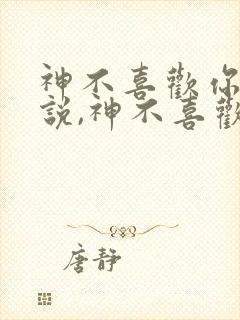 神不喜歡你
說,神不喜歡
唐靜